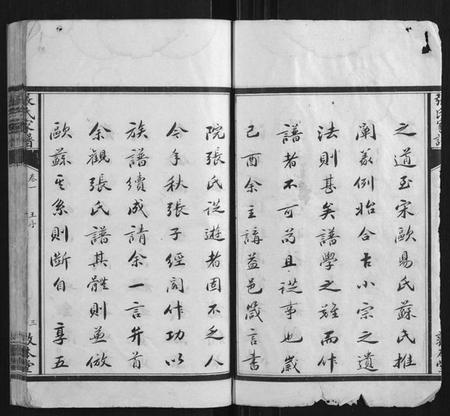 之道至宋歐陽氏蘇氏推
闡義例始合古小宗之遺
法則甚矣譜學之難而作
譜者不可苟且從事也歲
己酉余主講益邑箴言書
院張氏從遊者固不乏人
今年秋張子經閣作功以
族譜續成請余一言弁首
余觀張氏譜其體則並倣
歐蘇其系則斷自 享五
張氏家譜
卷一
序
三